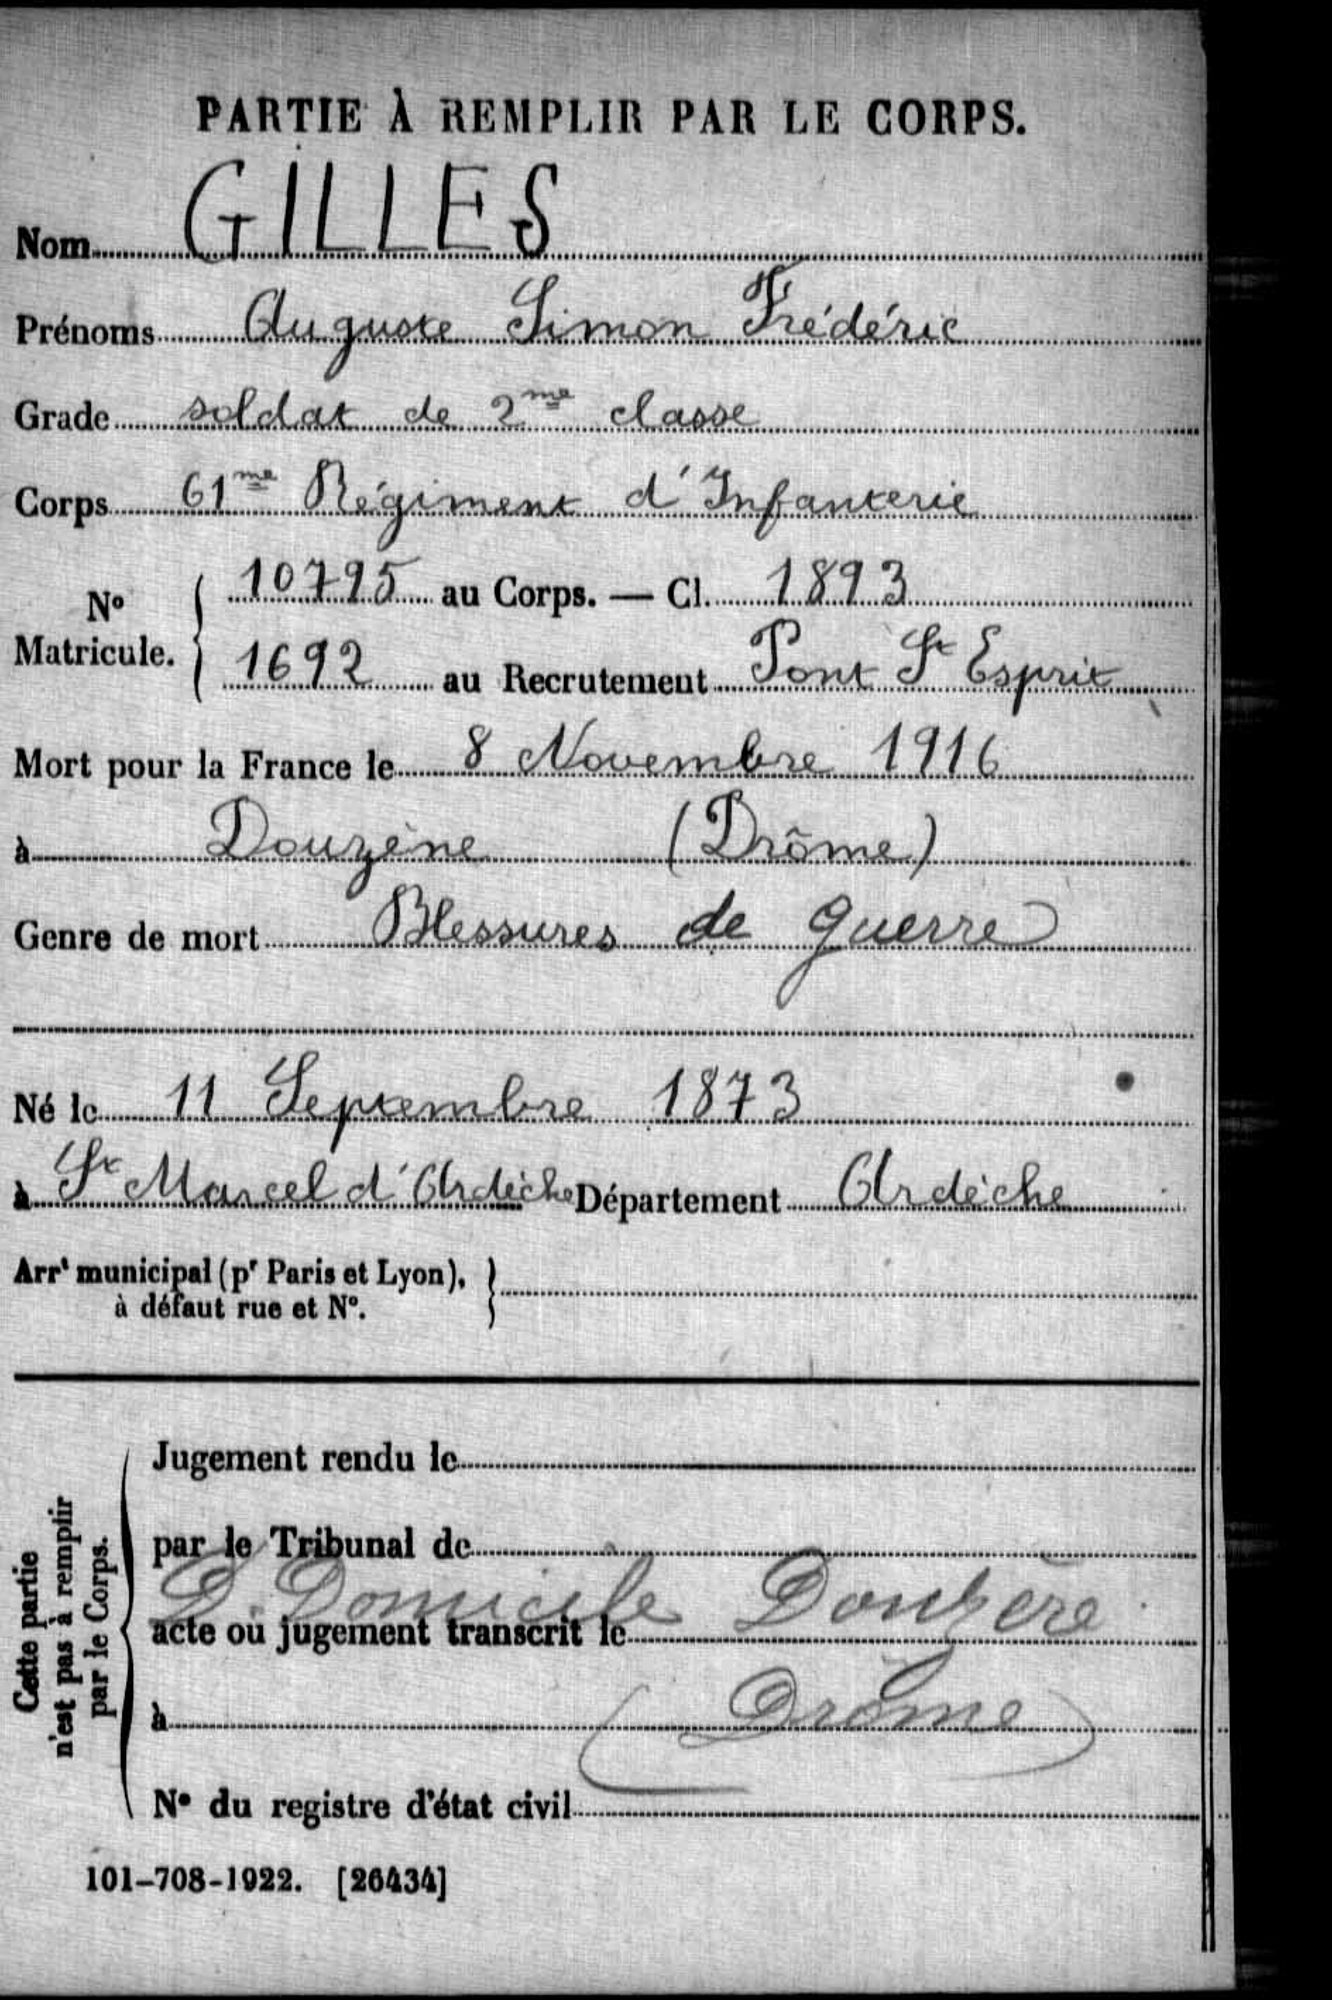 PARTIE À REMPLIR PAR LE CORPS.
Nom GILLES
Prénoms Auguste Simon Frédéric
Grade soldat de 2me classe
Corps 61me Régiment d'Infanterie
No Matricule. { 10795 au Corps. — Cl. 1893
1692 au Recrutement Pont St Esprit
Mort pour la France le 8 Novembre 1916
à Douzène (Drôme)
Genre de mort Blessures de guerre
Né le 11 Septembre 1873
à St Marcel d'Ardèche Département Ardèche
Arrt municipal (pr Paris et Lyon), }
à défaut rue et No.
Cette partie
n'est pas à remplir
par le Corps.
Jugement rendu le
par le Tribunal de
D. Domicile Donzère
acte ou jugement transcrit le
à (Drôme)
No du registre d'état civil
101-708-1922. [26434]